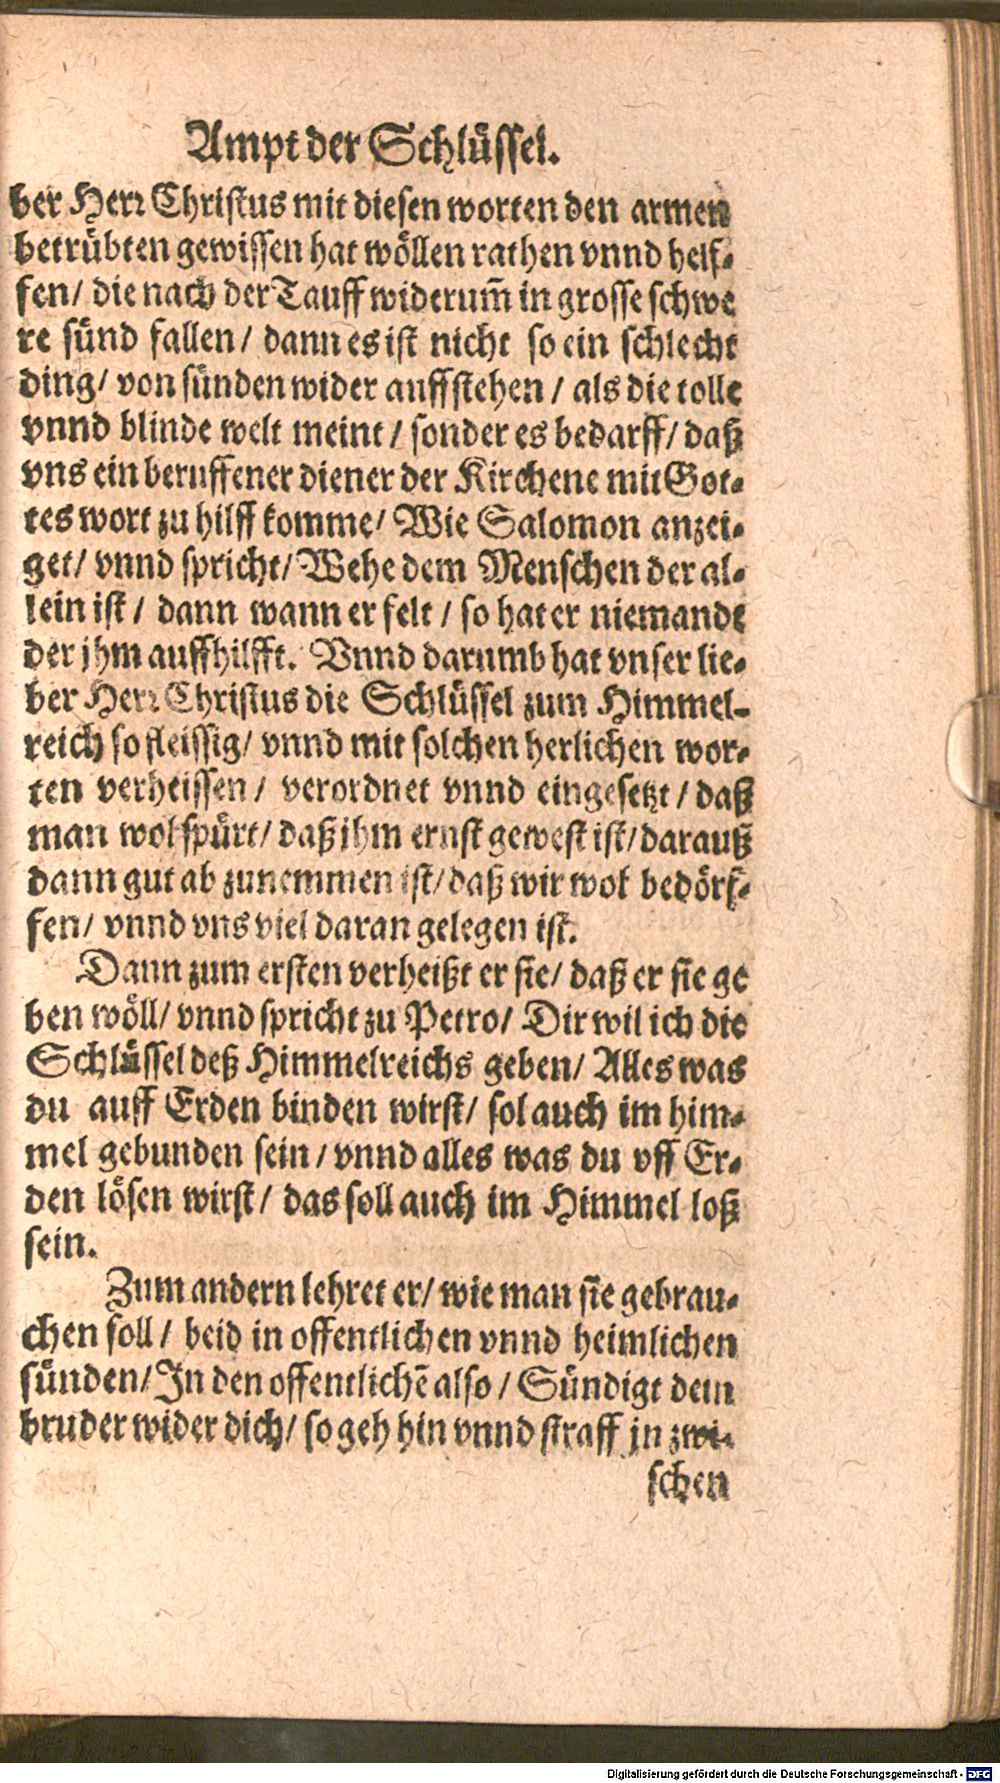 Ampt der Schlüssel.
ber Herr Christus mit diesen worten den armen
betrübten gewissen hat wöllen rathen vnnd helf-
fen/ die nach der Tauff widerum̃ in grosse schwe
re sünd fallen/ dann es ist nicht so ein schlecht
ding/ von sünden wider auffstehen/ als die tolle
vnnd blinde welt meint/ sonder es bedarff/ daß
vns ein beruffener diener der Kirchene mit Got-
tes wort zu hilff komme/ Wie Salomon anzei-
get/ vnnd spricht/ Wehe dem Menschen der al-
lein ist/ dann wann er felt/ so hat er niemandt
der jhm auffhilfft. Vnnd darumb hat vnser lie-
ber Herr Christus die Schlüssel zum Himmel-
reich so fleissig/ vnnd mit solchen herlichen wor-
ten verheissen/ verordnet vnnd eingesetzt/ daß
man wol spürt/ daß jhm ernst gewest ist/ darauß
dann gut ab zunemmen ist/ daß wir wol bedörf-
fen/ vnnd vns viel daran gelegen ist.
Dann zum ersten verheißt er sie/ daß er sie ge
ben wöll/ vnnd spricht zu Petro/ Dir wil ich die
Schlüssel deß Himmelreichs geben/ Alles was
du auff Erden binden wirst/ sol auch im him-
mel gebunden sein/ vnnd alles was du vff Er-
den lösen wirst/ das soll auch im Himmel loß
sein.
Zum andern lehret er/ wie man sie gebrau-
chen soll/ beid in offentlichen vnnd heimlichen
sünden/ In den offentlichẽ also/ Sündigt dein
bruder wider dich/ so geh hin vnnd straff jn zwi-
schen
Digitalisierung gefördert durch die Deutsche Forschungsgemeinschaft - DFG